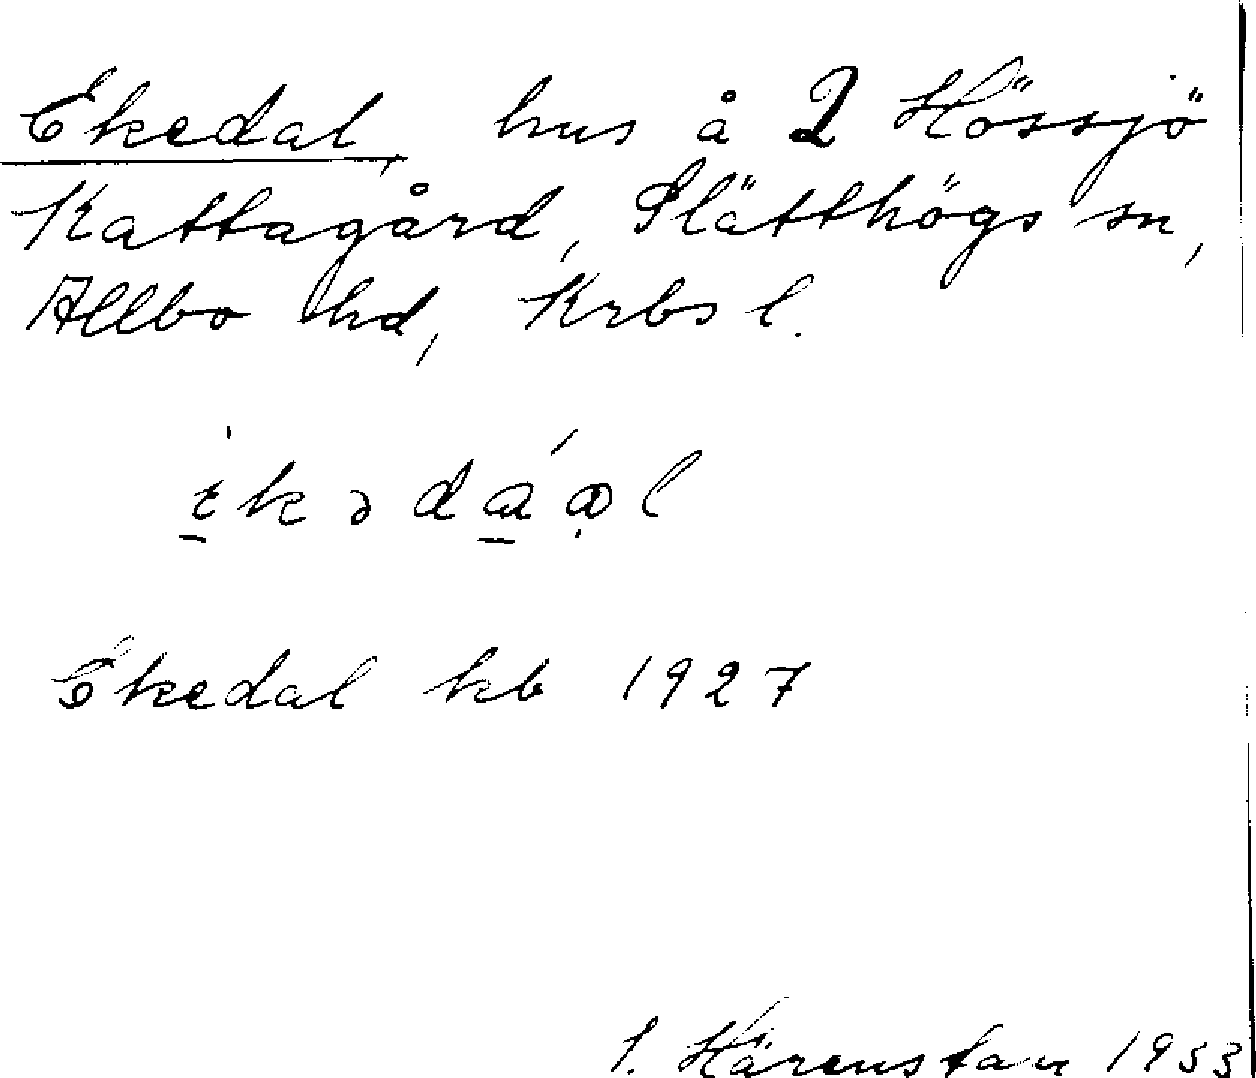 Ekedal, hus å 2 Hössjö
Kattagård, Slätthögs sn,
Allbo hd, Krbs l.
Ekedal kb 1927
1953